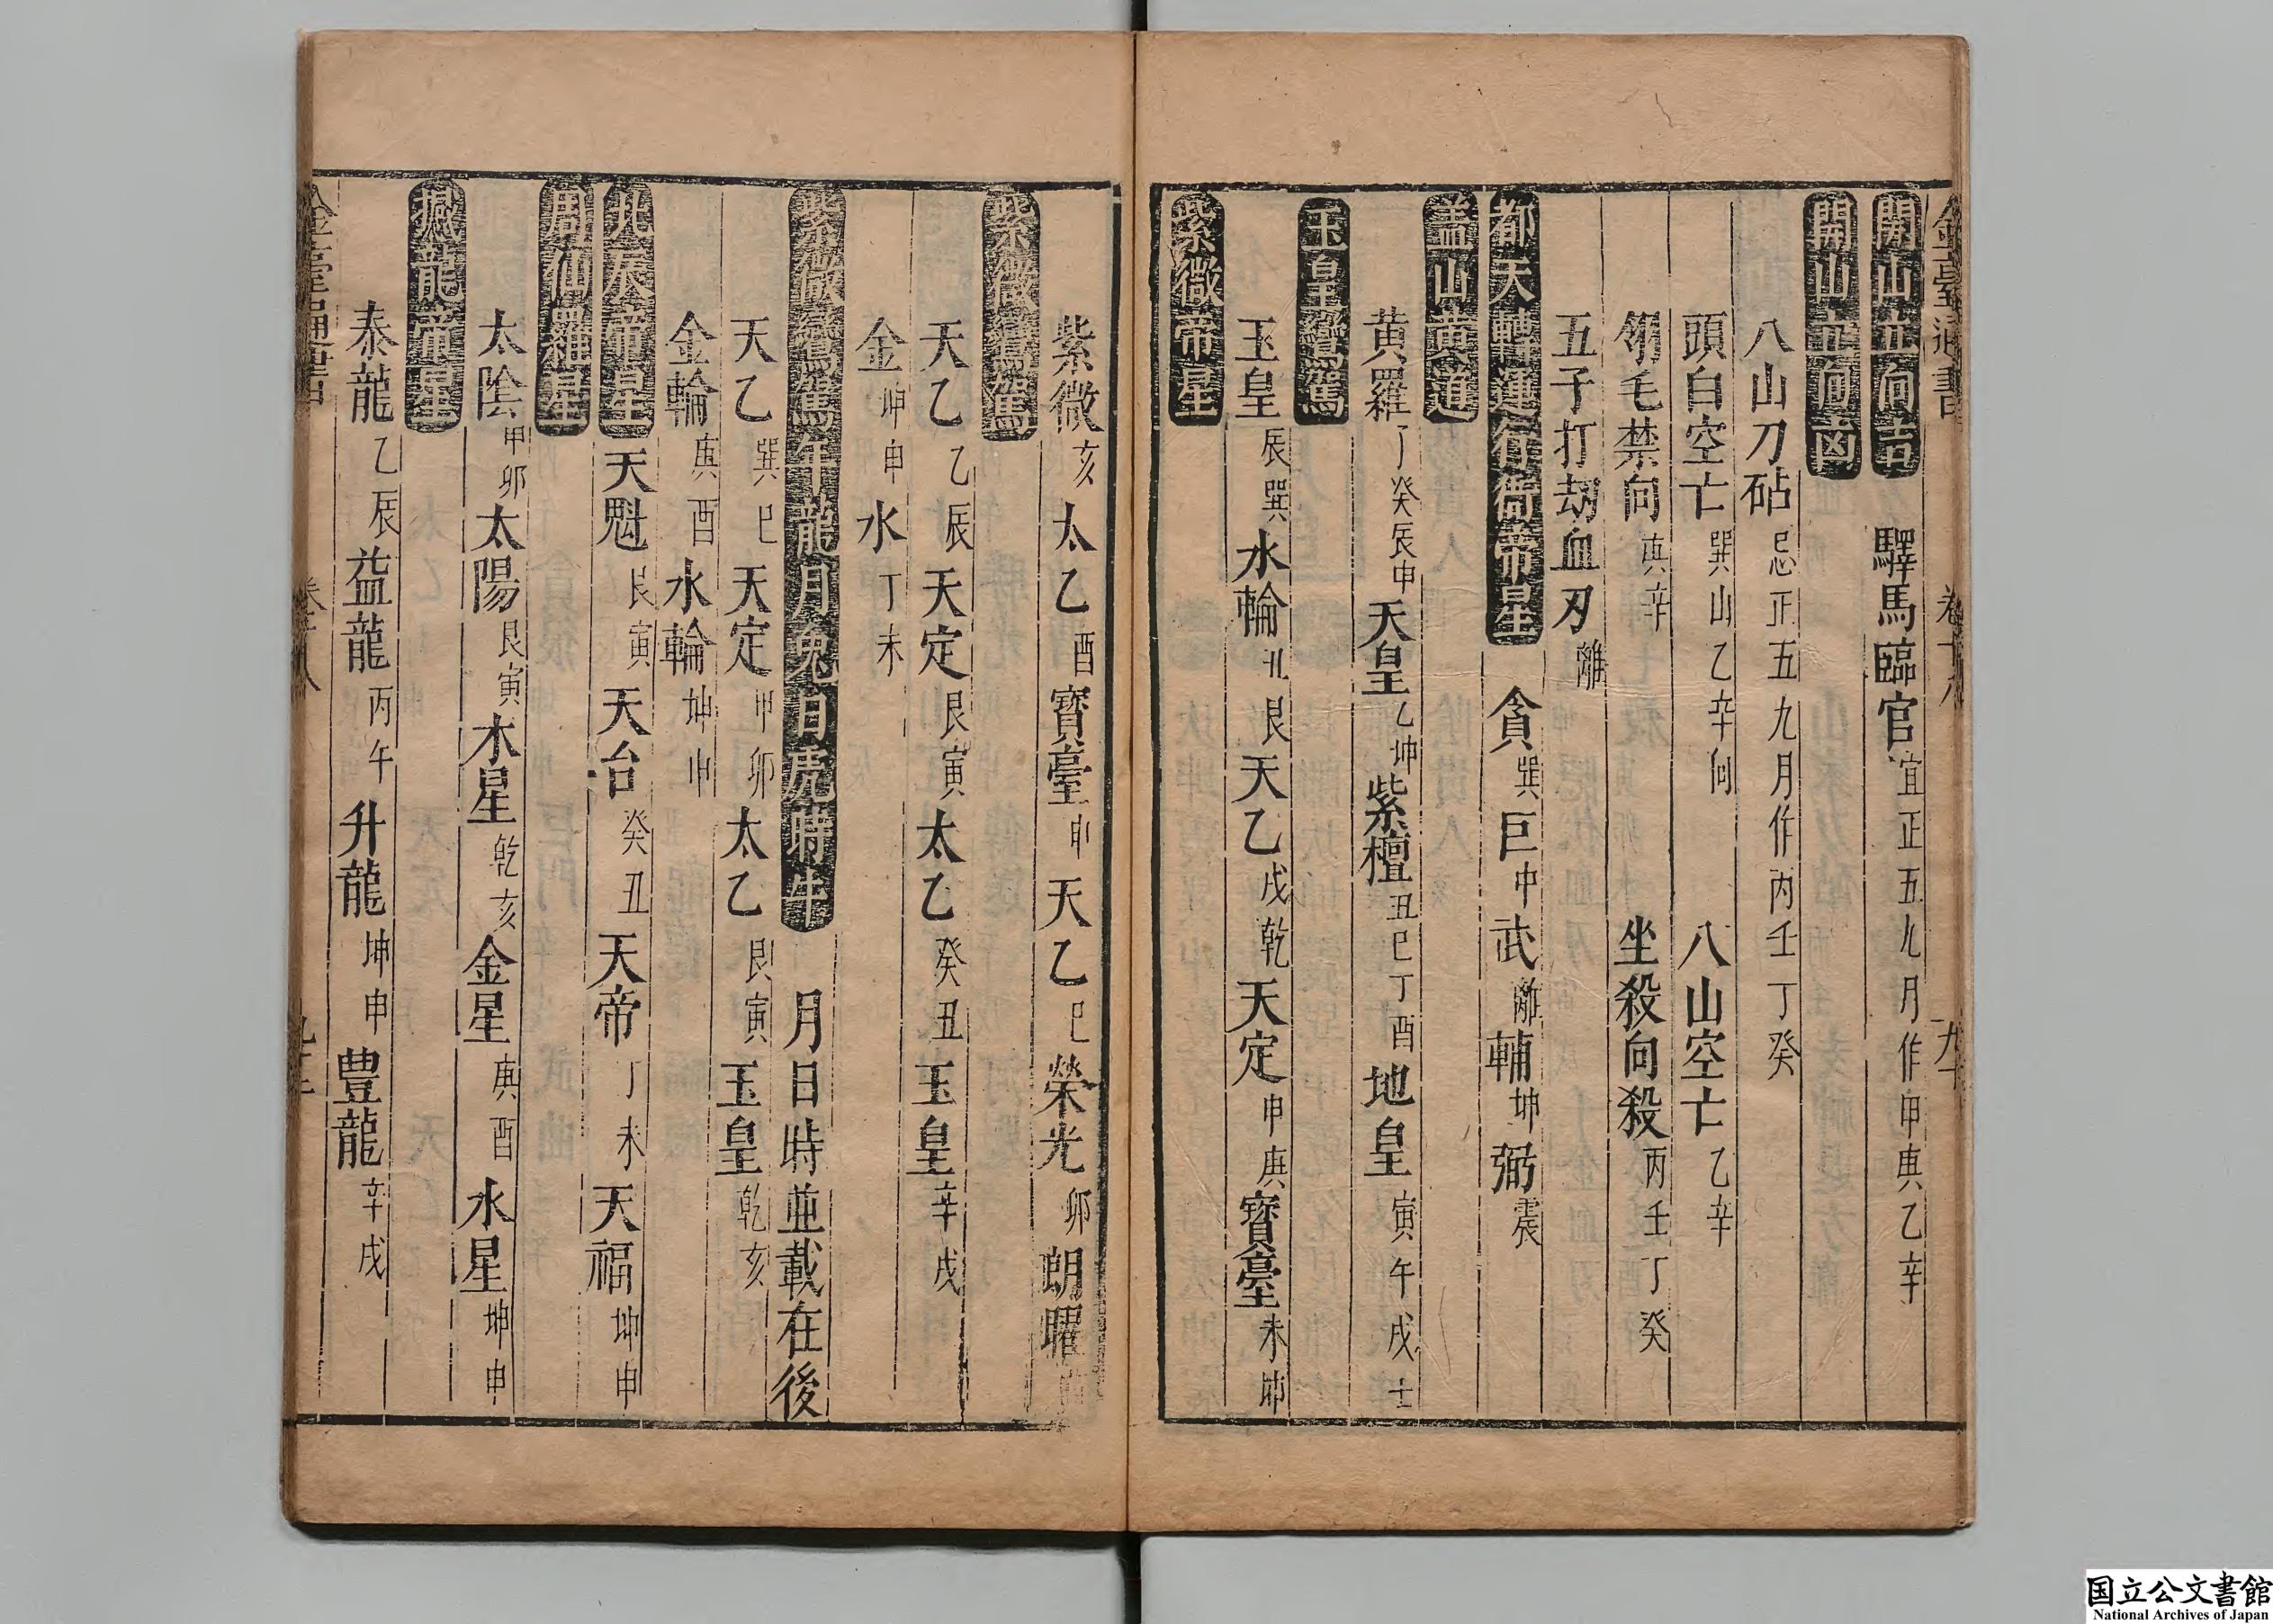 金臺通書 卷十八 九十
開山立向吉 驛馬臨官 宜正五九月作申庚乙辛
開山立向凶
八山刀砧 忌正五九月作丙壬丁癸
頭白空亡 巽山乙辛向 八山空亡 乙辛
翎毛禁向 庚辛 坐殺向殺 丙壬丁癸
五子打劫血刃 離
都天轉運行衙帝星 貪巽 巨中 武離 輔坤 弼震
盖山黄道
黄羅 丁癸辰申 天皇 乙坤 紫檀 丑巳丁酉 地皇 寅午戌士
玉皇鑾駕
玉皇 辰巽 水輪 丑艮 天乙 戌乾 天定 申庚 寳臺 未坤
紫微帝星
紫微 亥 太乙 酉 寳臺 申 天乙 巳 榮光 卯 朗曜
紫微鑾駕
天乙 乙辰 天定 艮寅 太乙 癸丑 玉皇 辛戌
金 坤申 水 丁未
紫微鑾駕年龍月兔日虎時牛 月日時並載在後
天乙 巽巳 天定 甲卯 太乙 艮寅 玉皇 乾亥
金輪 庚酉 水輪 坤申
九天帝星 天魁 艮寅 天台 癸丑 天帝 丁未 天福 坤申
周仙羅星
太陰 甲卯 太陽 艮寅 木星 乾亥 金星 庚酉 水星 坤申
撼龍帝星
泰龍 乙辰 益龍 丙午 升龍 坤申 豊龍 辛戌
金臺通書 卷十八
国立公文書館
National Archives of Japan